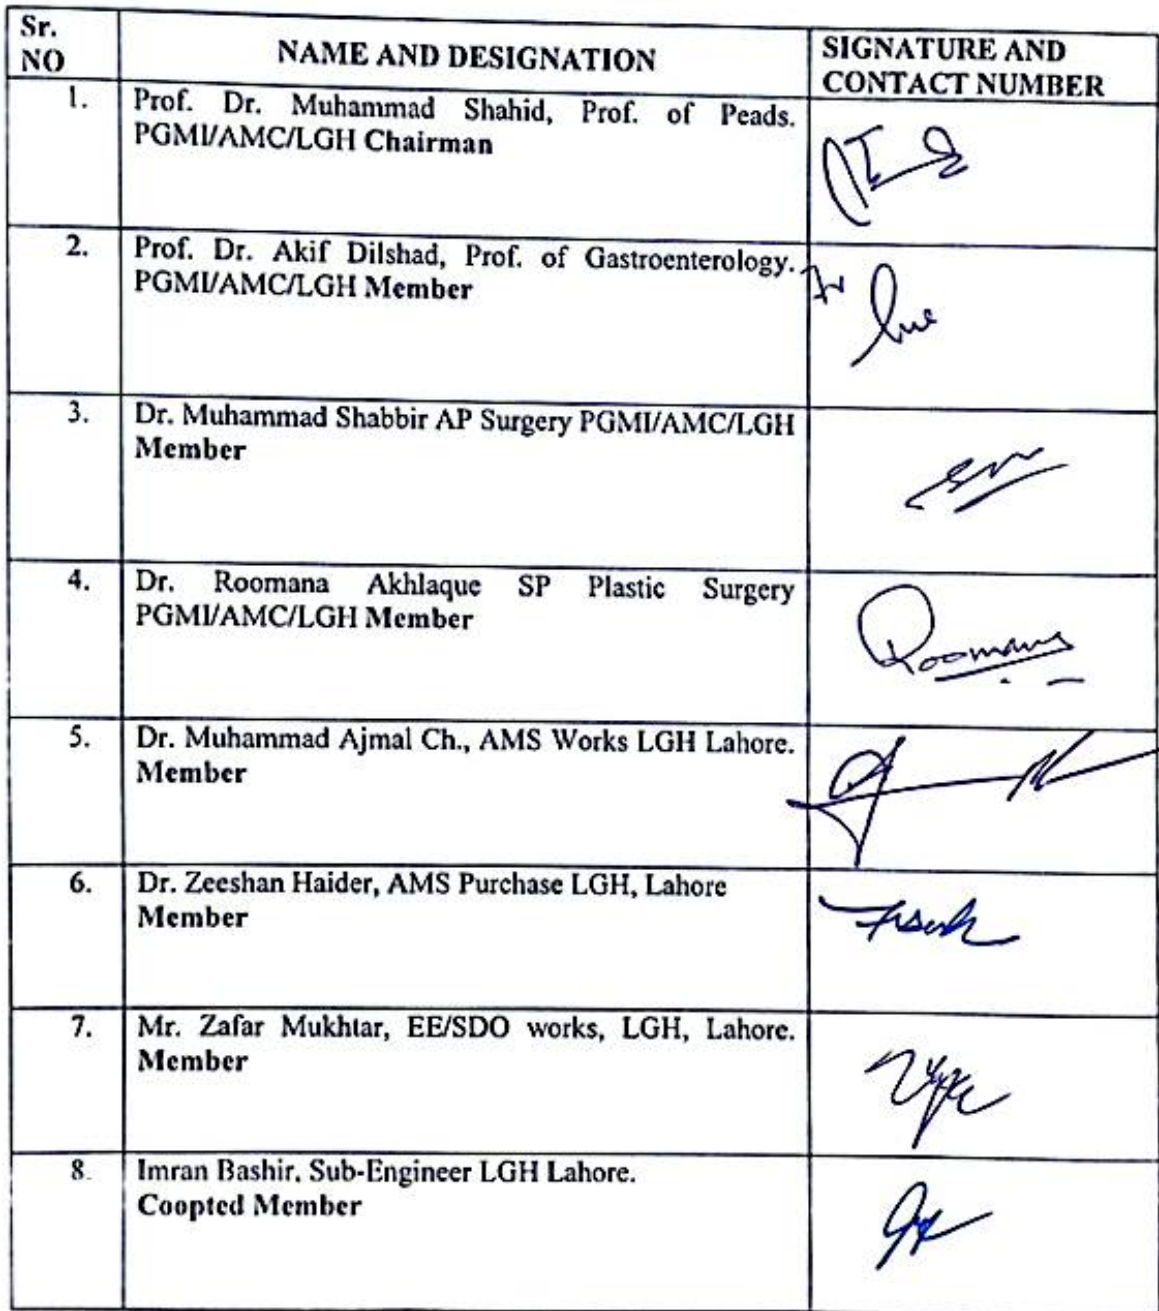 Sr.
NO
NAME AND DESIGNATION
SIGNATURE AND
CONTACT NUMBER
1.
Prof. Dr. Muhammad Shahid, Prof. of Peads.
PGMI/AMC/LGH Chairman
2.
Prof. Dr. Akif Dilshad, Prof. of Gastroenterology.
PGMI/AMC/LGH Member
3.
Dr. Muhammad Shabbir AP Surgery PGMI/AMC/LGH
Member
4.
Dr. Roomana Akhlaque SP Plastic Surgery
PGMI/AMC/LGH Member
Roomana
5.
Dr. Muhammad Ajmal Ch., AMS Works LGH Lahore.
Member
6.
Dr. Zeeshan Haider, AMS Purchase LGH, Lahore
Member
7.
Mr. Zafar Mukhtar, EE/SDO works, LGH, Lahore.
Member
8.
Imran Bashir, Sub-Engineer LGH Lahore.
Coopted Member